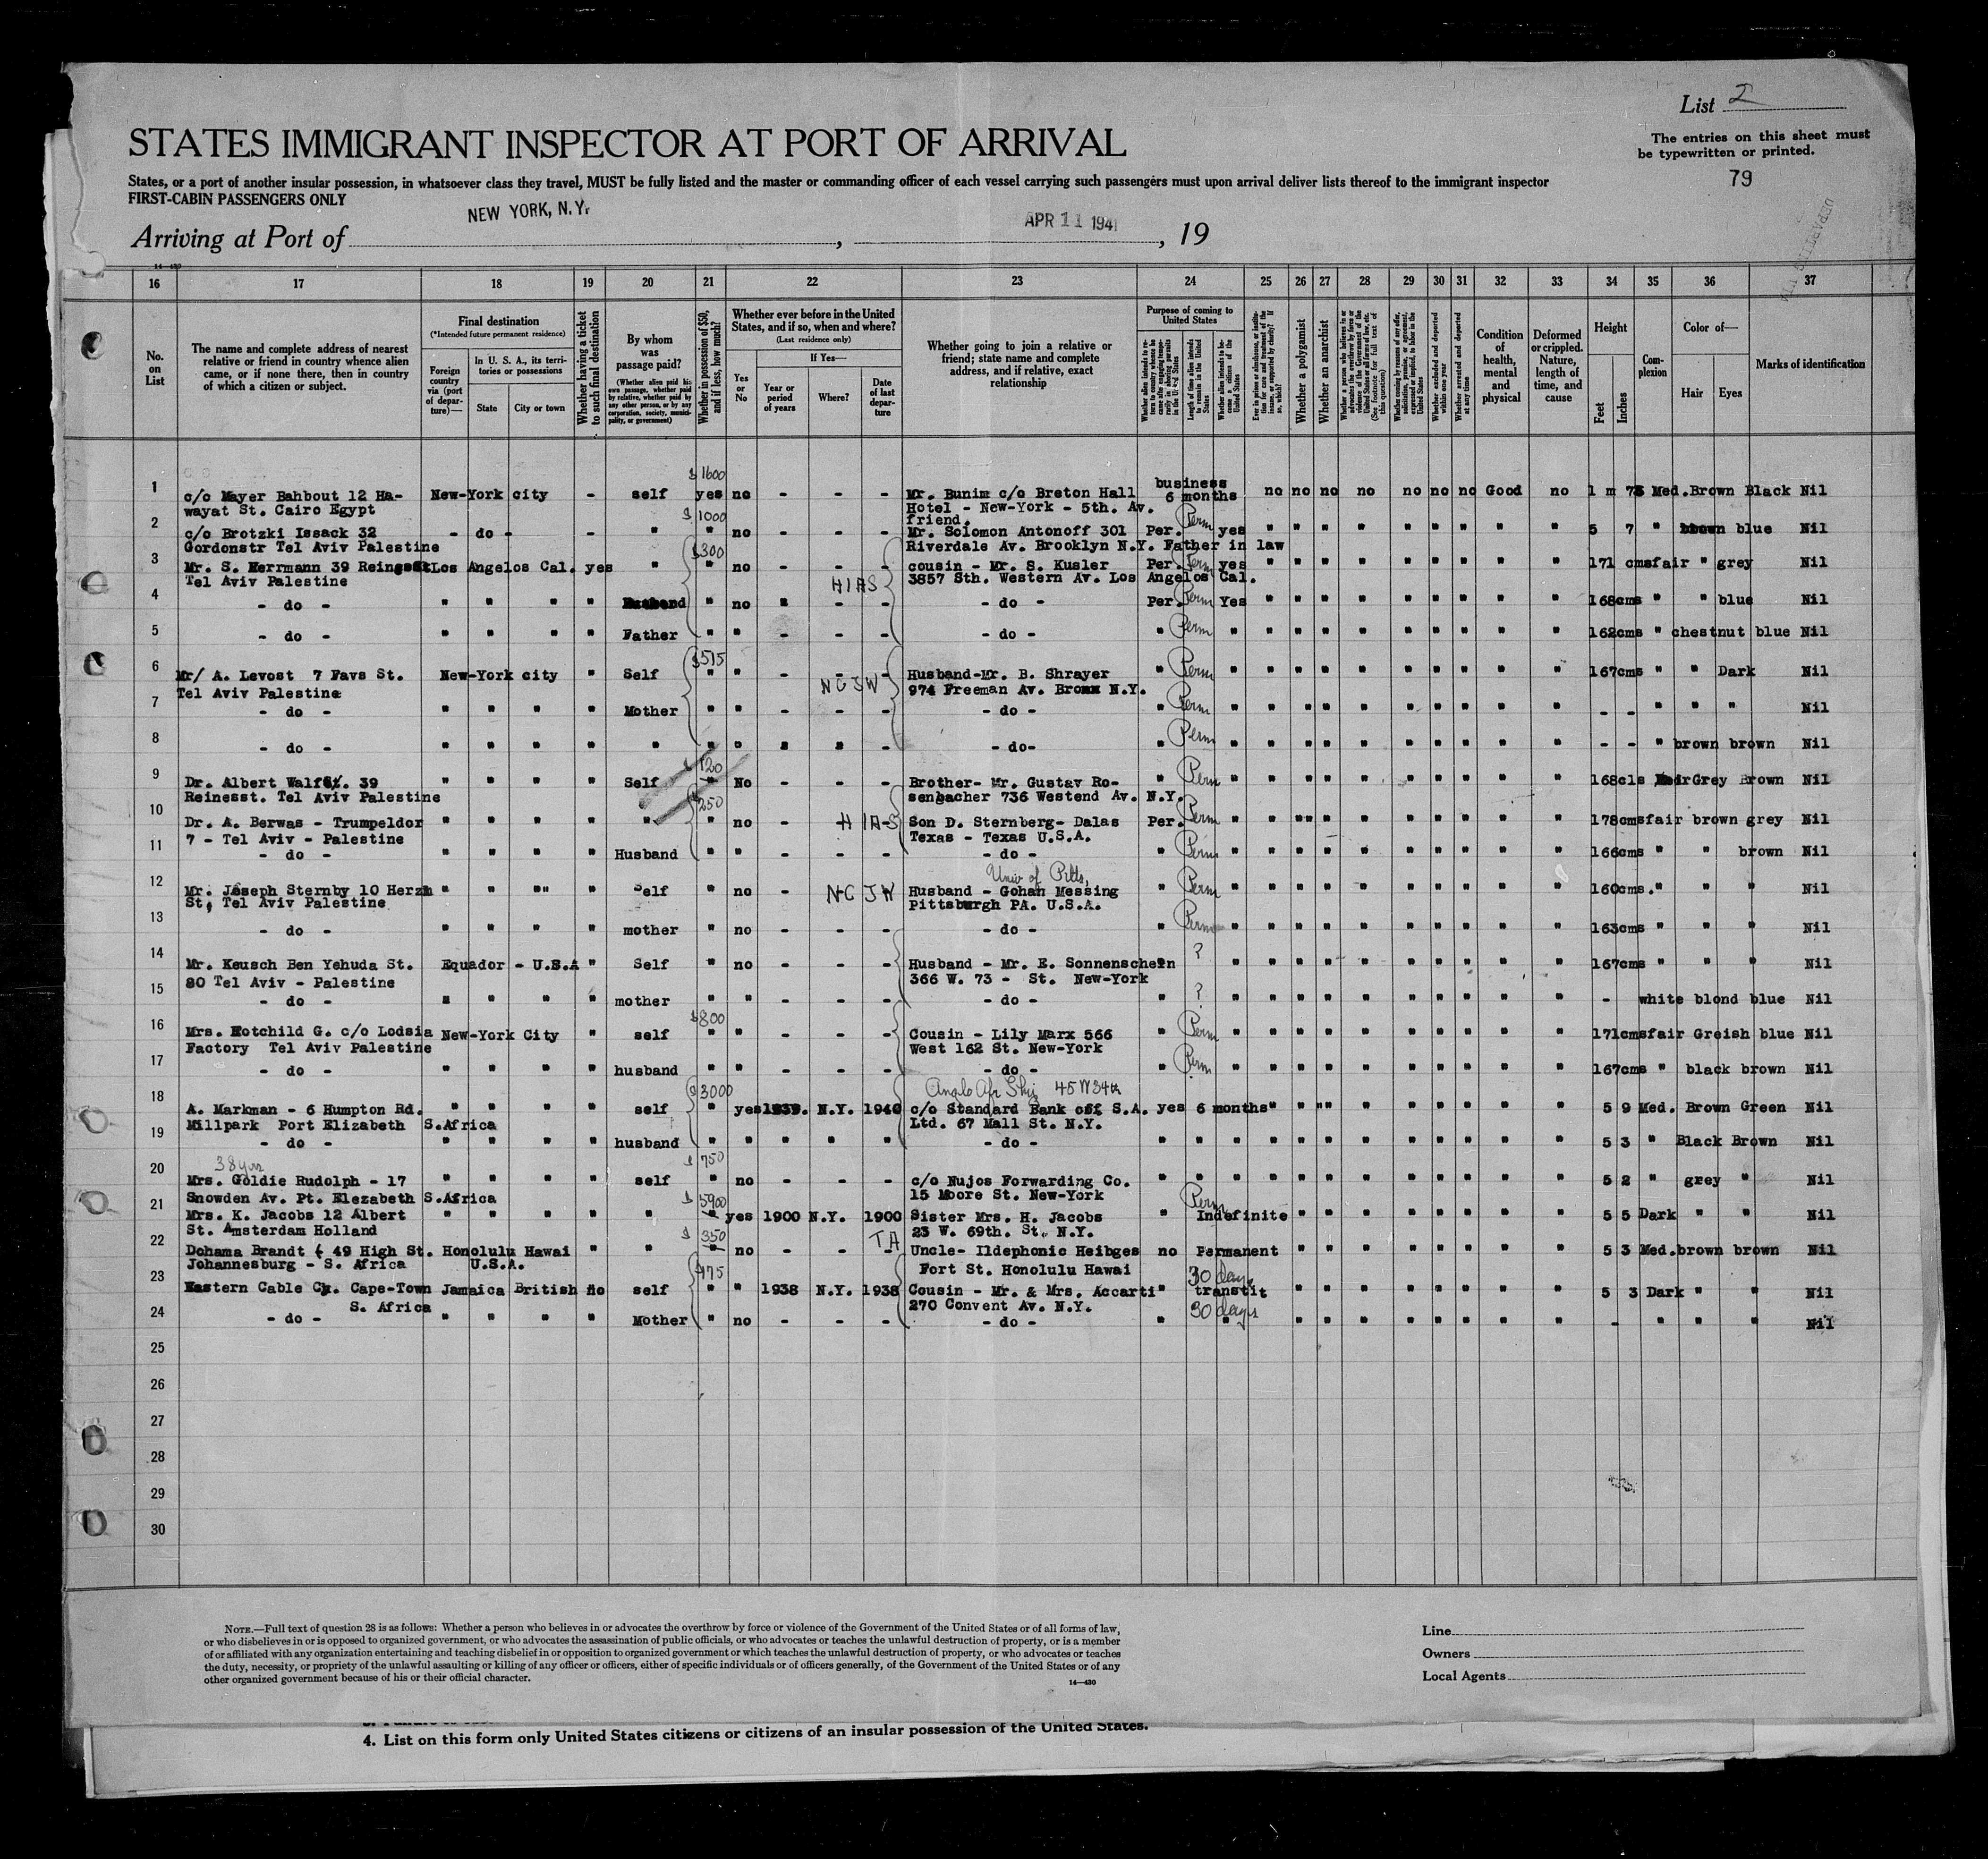 List 2
STATES IMMIGRANT INSPECTOR AT PORT OF ARRIVAL
The entries on this sheet must
be typewritten or printed.
States, or a port of another insular possession, in whatsoever class they travel, MUST be fully listed and the master or commanding officer of each vessel carrying such passengers must upon arrival deliver lists thereof to the immigrant inspector
79
FIRST-CABIN PASSENGERS ONLY
Arriving at Port of NEW YORK, N.Y. , APR 11 1941 , 19
14—430
16 17 18 19 20 21 22 23 24 25 26 27 28 29 30 31 32 33 34 35 36 37
No. on List
The name and complete address of nearest relative or friend in country whence alien came, or if none there, then in country of which a citizen or subject.
Final destination
(*Intended future permanent residence)
Foreign country via (port of departure)—
In U. S. A., its territories or possessions
State
City or town
Whether having a ticket to such final destination
By whom was passage paid?
(Whether alien paid his own passage, whether paid by relative, whether paid by any other person, or by any corporation, society, municipality, or government)
Whether in possession of $50, and if less, how much?
Whether ever before in the United States, and if so, when and where?
(Last residence only)
Yes or No
If Yes—
Year or period of years
Where?
Date of last departure
Whether going to join a relative or friend; state name and complete address, and if relative, exact relationship
Purpose of coming to United States
Length of time alien intends to remain in the United States
Whether alien intends to become a citizen of the United States
Whether a polygamist
Whether an anarchist
Whether excluded and deported within one year
Whether arrested and deported at any time
Condition of health, mental and physical
Deformed or crippled. Nature, length of time, and cause
Height
Feet
Inches
Complexion
Color of—
Hair
Eyes
Marks of identification
$1600
1 c/o Mayer Bahbout 12 Ha- New-York city - self yes no - - - Mr. Bunim c/o Breton Hall business 6 months no no no no no no no Good no 1 m 73 Med. Brown Black Nil
wayat St. Cairo Egypt Hotel - New-York - 5th. Av.
$1000 friend.
2 c/o Brotzki Issack 32 - do - - " " no - - - Mr. Solomon Antonoff 301 Per. Perm yes " " " " " " " " " 5 7 " brown blue Nil
Gordonstr Tel Aviv Palestine $300 Riverdale Av. Brooklyn N.Y. Father in law
3 Mr. S. Herrmann 39 Reinesst Los Angelos Cal. yes " " no - - - cousin - Mr. S. Kusler Per. Perm yes " " " " " " " " " 171 cms fair " grey Nil
Tel Aviv Palestine HIAS 3857 Sth. Western Av. Los Angelos Cal.
4 - do - " " " " Husband " no " - - - do - Per. Perm Yes " " " " " " " " " 168cms " " blue Nil
5 - do - " " " " Father " " - - - - do - " Perm " " " " " " " " " " 162cms " chestnut blue Nil
$515
6 Mr/ A. Levost 7 Favs St. New-York city " Self " " - - - Husband-Mr. B. Shrayer " Perm " " " " " " " " " " 167cms " " Dark Nil
Tel Aviv Palestine NCJW 974 Freeman Av. Bronx N.Y.
7 - do - " " " " Mother " " - - - - do - " Perm " " " " " " " " " " - - " " " Nil
8 - do - " " " " " " " " " - - do- " Perm " " " " " " " " " " - - " brown brown Nil
$120
9 Dr. Albert Walfst. 39 " " " " Self " No - - - Brother- Mr. Gustav Ro- " Perm " " " " " " " " " " 168cls Grey Brown Nil
Reinesst. Tel Aviv Palestine $250 senbacher 736 Westend Av. N.Y.
10 Dr. A. Berwas - Trumpeldor " " " " " " no - HIAS Son D. Sternberg- Dalas Per. Perm " " " " " " " " " " 178cms fair brown grey Nil
7 - Tel Aviv - Palestine Texas - Texas U.S.A.
11 - do - " " " " Husband " " - - - - do - " Perm " " " " " " " " " " 166cms " " brown Nil
Univ of Pitts,
12 Mr. Joseph Sternby 10 Herzn " " " " Self " no - NCJW Husband - Gohan Messing " Perm " " " " " " " " " " 160cms. " " " Nil
St, Tel Aviv Palestine Pittsburgh PA. U.S.A.
13 - do - " " " " mother " no - - - - do - " Perm " " " " " " " " " " 163cms " " " Nil
14 Mr. Keusch Ben Yehuda St. Equador - U.S.A " Self " no - - - Husband - Mr. E. Sonnenschein " ? " " " " " " " " " " 167cms " " " Nil
80 Tel Aviv - Palestine 366 W. 73 - St. New-York
15 - do - " " " " mother " " - - - - do - " ? " " " " " " " " " " - white blond blue Nil
$800
16 Mrs. Rotchild G. c/o Lodsia New-York City " self " " - - - Cousin - Lily Marx 566 " Perm " " " " " " " " " " 171cms fair Greish blue Nil
Factory Tel Aviv Palestine West 162 St. New-York
17 - do - " " " " husband " " - - - - do - " Perm " " " " " " " " " " 167cms " black brown Nil
$3000 Anglo Afr Ship 45 W 34th
18 A. Markman - 6 Humpton Rd. " " " " self " yes 1939. N.Y. 1940 c/o Standard Bank off S.A. yes 6 months " " " " " " " " " " 5 9 Med. Brown Green Nil
Millpark Port Elizabeth S.Africa Ltd. 67 Wall St. N.Y.
19 - do - " " " " husband " " " " " - do - " " " " " " " " " " " " 5 3 " Black Brown Nil
38 yrs $750
20 Mrs. Goldie Rudolph - 17 " " " " self " no - - - c/o Nujos Forwarding Co. " " " " " " " " " " " " 5 2 " grey " Nil
Snowden Av. Pt. Elezabeth S.Africa $5900 15 Moore St. New-York Perm
21 Mrs. K. Jacobs 12 Albert " " " " " " yes 1900 N.Y. 1900 Sister Mrs. H. Jacobs " Indefinite " " " " " " " " " 5 5 Dark " " Nil
St. Amsterdam Holland $350 TA 23 W. 69th. St. N.Y.
22 Dohama Brandt ( 49 High St. Honolulu Hawai " " " no - - - Uncle- Ildephonic Heibges no Permanent " " " " " " " " " 5 3 Med. brown brown Nil
Johannesburg - S. Africa U.S.A. $475 Fort St. Honolulu Hawai 30 days
23 Eastern Cable Cy. Cape-Town Jamaica British no self " " 1938 N.Y. 1938 Cousin - Mr. & Mrs. Accarti " transtit " " " " " " " " " 5 3 Dark " " Nil
S. Africa 270 Convent Av. N.Y. 30 days
24 - do - " " " " Mother " no - - - - do - " " " " " " " " " " " - " " " Nil
25
26
27
28
29
30
NOTE.—Full text of question 28 is as follows: Whether a person who believes in or advocates the overthrow by force or violence of the Government of the United States or of all forms of law,
or who disbelieves in or is opposed to organized government, or who advocates the assassination of public officials, or who advocates or teaches the unlawful destruction of property, or is a member
of or affiliated with any organization entertaining and teaching disbelief in or opposition to organized government or which teaches the unlawful destruction of property, or who advocates or teaches
the duty, necessity, or propriety of the unlawful assaulting or killing of any officer or officers, either of specific individuals or of officers generally, of the Government of the United States or of any
other organized government because of his or their official character.
14—430
Line
Owners
Local Agents
4. List on this form only United States citizens or citizens of an insular possession of the United States.